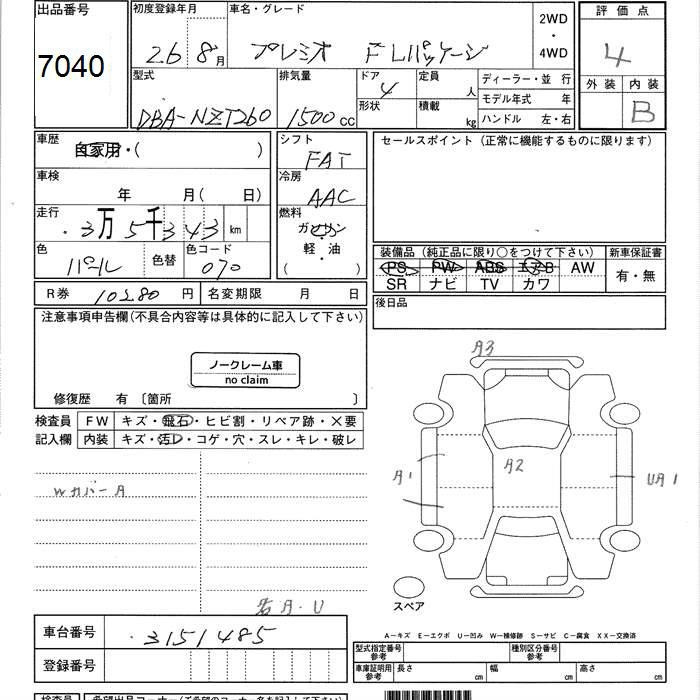 出品番号
7040
初度登録年月
26 8月
車名・グレード
プレミオ F Lパッケージ
2WD
・
4WD
評価点
4
外装 内装
B
型式
DBA-NZT260
排気量
1500cc
ドア
4
形状
定員
人
積載
kg
ディーラー・並行
モデル年式 年
ハンドル 左・右
車歴
自家用・( )
シフト
FAT
セールスポイント(正常に機能するものに限ります)
車検
年 月( 日)
冷房
AAC
走行
3万5千343km
燃料
ガソリン
軽・油
( )
色
パール
色替
色コード
070
装備品(純正品に限り○をつけて下さい)
PS PW ABS エアB AW
SR ナビ TV カワ
新車保証書
有・無
R券 10280円
名変期限 月 日
後日品
注意事項申告欄(不具合内容等は具体的に記入して下さい)
ノークレーム車
no claim
修復歴 有 〔箇所 〕
検査員
記入欄
FW キズ・飛石・ヒビ割・リペア跡・X要
内装 キズ・汚レ・コゲ・穴・スレ・キレ・破レ
Wカバー A
A3
A1
A2
UA1
スペア
A・U
車台番号
3151485
登録番号
A―キズ E―エクボ U―凹み W―補修跡 S―サビ C―腐食 XX―交換済
型式指定番号
参考
種別区分番号
参考
車庫証明用
参考
長さ cm
幅 cm
高さ cm
検査員
希望出品コーナー(ご希望のコーナー名を記入して下さい)